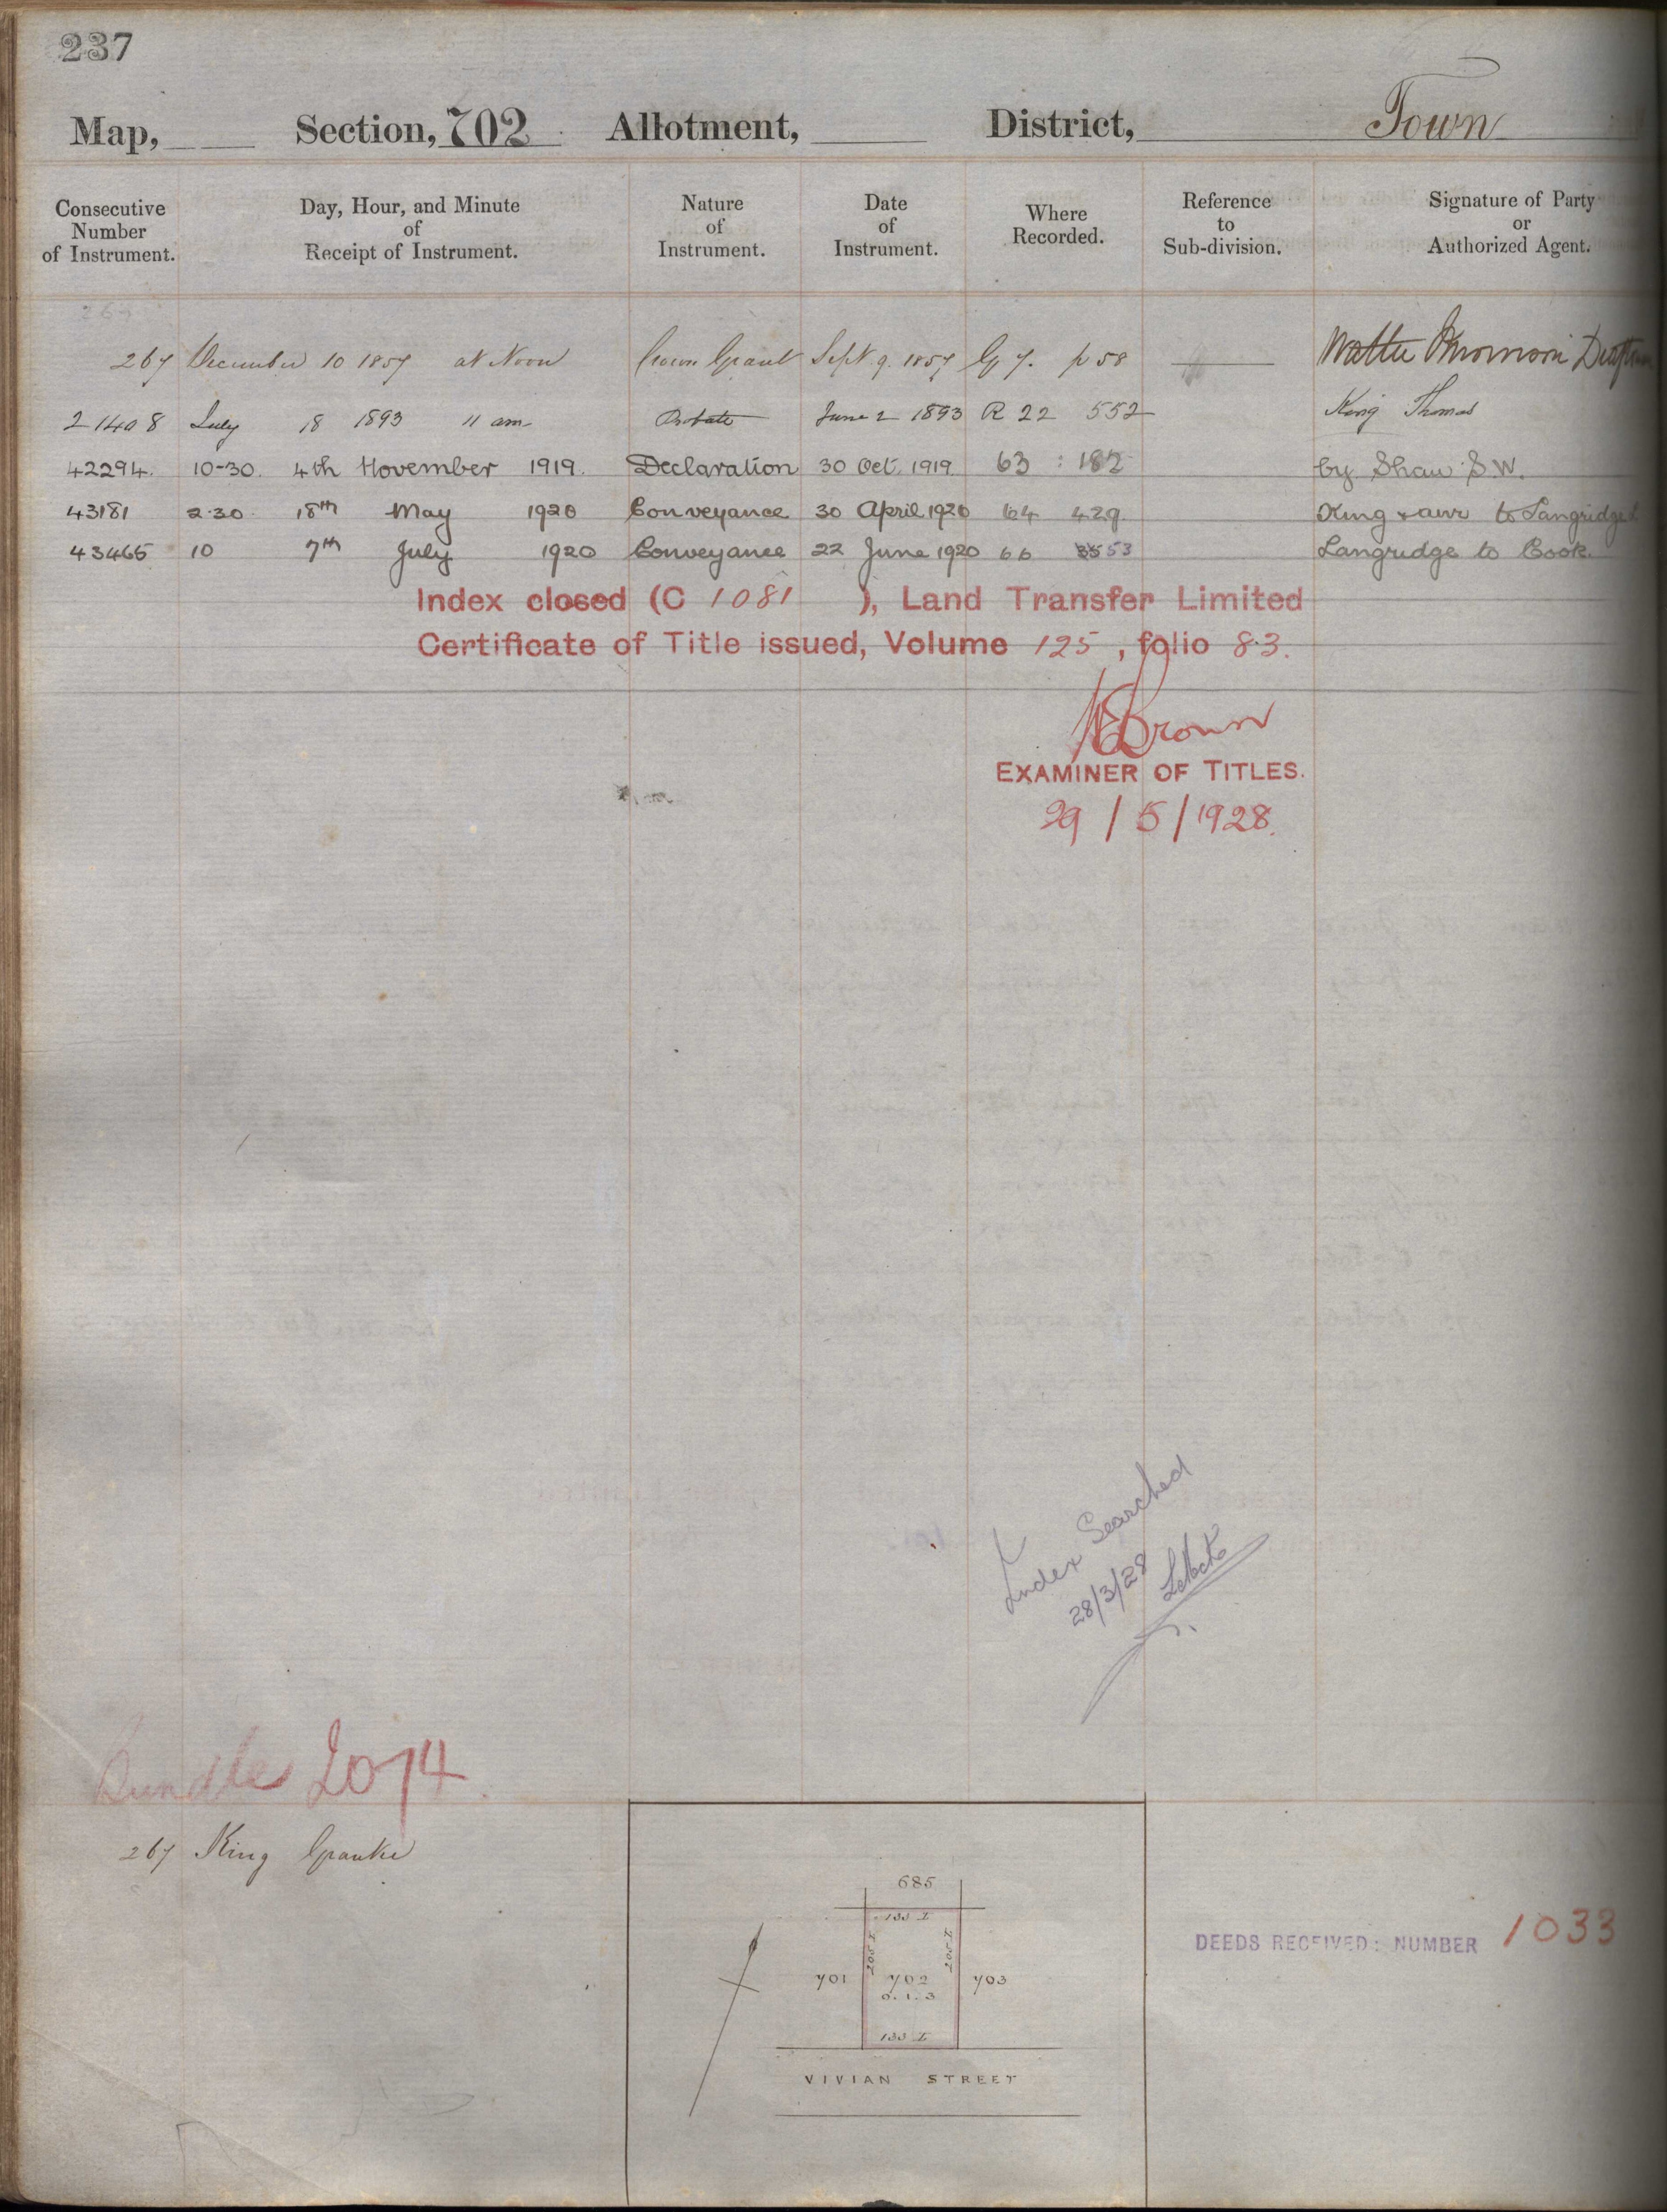 237
Map, Section, 702 Allotment, District, Town
Consecutive Number of Instrument. Day, Hour, and Minute of Receipt of Instrument. Nature of Instrument. Date of Instrument. Where Recorded. Reference to Sub-division. Signature of Party or Authorized Agent.
267 December 10 1857 at Noon Crown Grant Sept. 9. 1857 G 7. p 58 Walter
21408 July 18 1893 11 am Probate June 2 1893 R 22 552 King Thomas
42294. 10-30. 4th November 1919. Declaration 30 Oct. 1919 63 : 182 by Shaw S.W.
43181 2.30. 18th May 1920 Conveyance 30 April 1920 64 429 King & anr to Langridge
43465 10 7th July 1920 Conveyance 22 June 1920 66 53 Langridge to Cook.
Index closed (C 1081 ), Land Transfer Limited
Certificate of Title issued, Volume 125, folio 83.
Brown
EXAMINER OF TITLES.
29/5/1928.
Index Searched
28/3/28
Bundle 2074.
267 King Grantee
685
133 I
205 I
205 I
701 702 703
0. 1. 3
133 I
VIVIAN STREET
DEEDS RECEIVED: NUMBER 1033